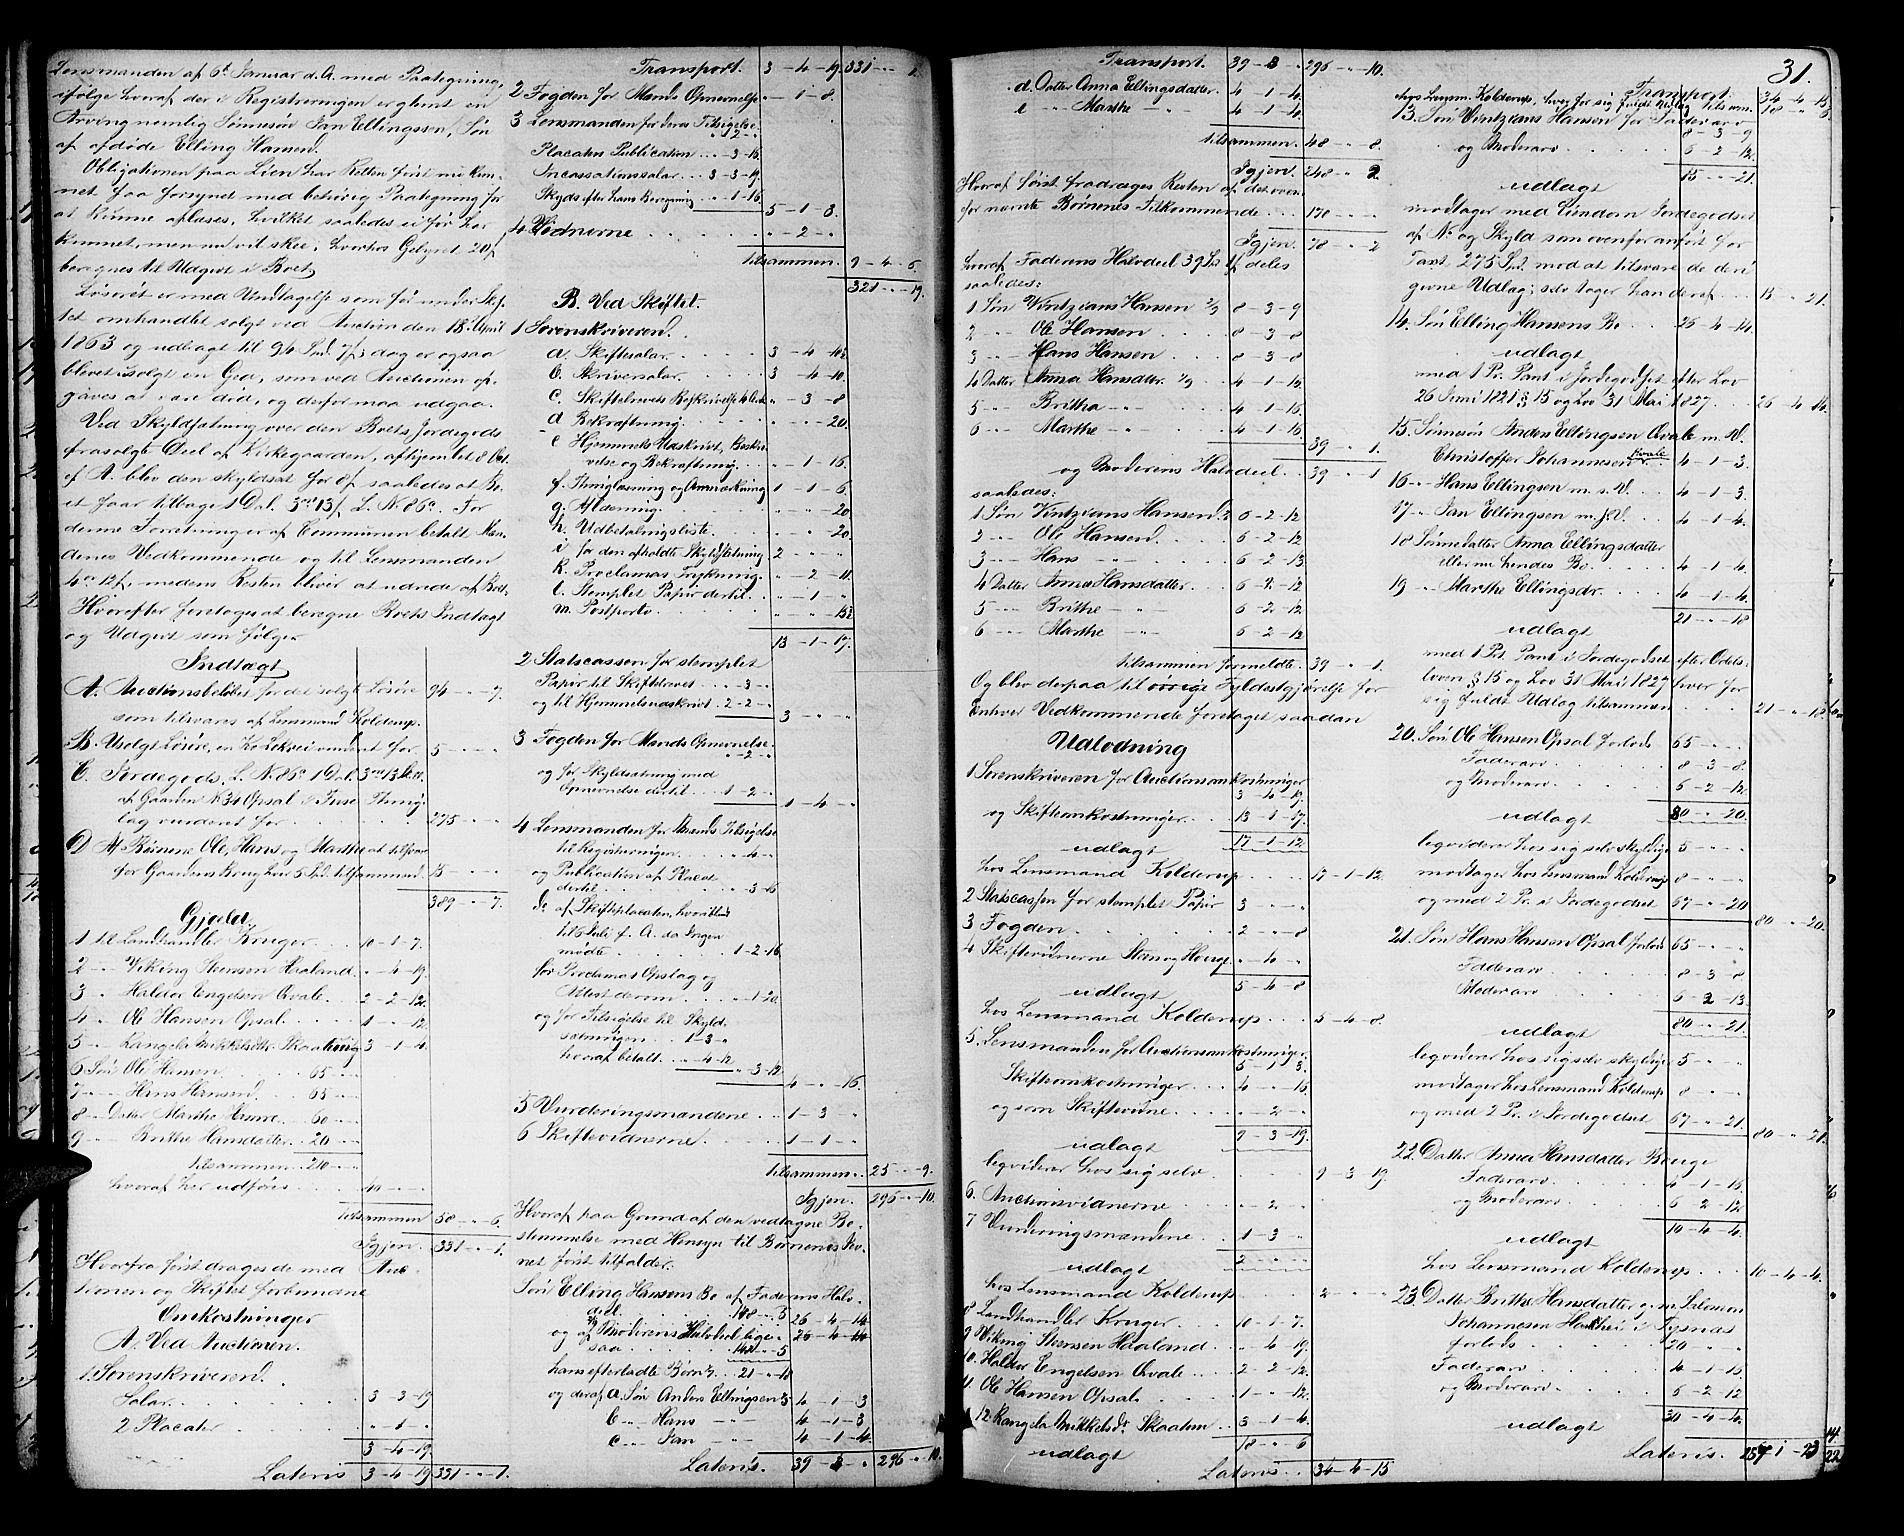 Lensmanden af 6te Januar d. A. med Paategning,
ifølge hvoraf der i Registreringen er glemt en
Arving nemlig Sønnesøn Jan Ellingsen, Søn
af afdøde Elling Hansen.
Obligationen paa Lien har Retten først nu kun-
net faa forsynet med behørig Paategning for
at kunne aflæses, hvilket saaledes ei før har
kunnet, men nu vil skee, hvorfor Gebyret 20 ſ
beregnes til Udgivt i Boet,
Løsøret er med Undtagelse som før under Skif-
tet omhandlet solgt ved Auction den 18 April
1863 og udbragt til 94 Spd. 7 ſ, dog er ogsaa
blevet usolgt en Ged, som ved Auctionen op-
gaves at være død, og derfor maa udgaa.
Ved Skyldsætning over den Boets Jordegods
frasolgte Deel af Kirkegaarden, afhjemlet 8 Oct.
f. A. blev den skyldsat for 8 ſ saaledes at Bo-
et faar tilbage 1 Dal. 3 ort 13 ſ. L. N. 86a. For
denne Forretning er af Communen betalt Mæn-
denes Vedkommende og til Lensmanden
4 ort 12 ſ, medens Resten bliver at udrede af Boet.
Hvorefter foretages at beregne Boets Indtægt
og Udgivt som følger
Indtægt
A. Auctionsbeløbet for det solgte Løsøre 94 - „ - 7.
som tilsvares af Lensmand Kolderup.
B. Usolgt Løsøre, en Ko Leksei vurderet for 5 - „ - „
C. Jordegods, L. N. 86a 1 Dal. 3 ort 13 ſ
af Gaarden N. 34 Opsal i Fuse Thing-
lag vurderet for 275 - „ - „
D. Af Børnene Ole, Hans og Marthe at tilsvar
for Gaardens Brug hver 5 Spd. tilsammen 15 - „ - „
389 - „ - 7.
Gjæld
1 til Landhandler Krüger 10 - 1 - 7.
2 „ Viking Steensen Haaland „ - 4 - 19.
3 „ Haldor Engelsen Qvale 2 - 2 - 12.
4 „ Ole Hansen Opsal 1 - „ - 12.
5 „ Rangela Mikkelsdtr. Skaatun 3 - 1 - 4.
6 Søn Ole Hansen 65 - „ - „
7 „ Hans Hansen 65 - „ - „
8 Datter Marthe Hansd. 60 - „ - „
9 „ Brithe Hansdatter 20 - „ - „
tilsammen 210 - „ - „
hvoraf her udføres 40 - „ - „
tilsammen 58 - „ - 6.
Igjen 331 - „ - 1.
Hvorfra først drages de med Auc-
tionen og Skiftet forbundne
Omkostninger
A. Ved Auctionen.
1. Sorenskriveren
Salar 3 - 3 - 19
2 Placater „ - 1 - „
3 - 4 - 19
Lateris 3 - 4 - 19 331 - „ - 1.
Transport. 3 - 4 - 19. 331 - „ - 1.
2 Fogden for Mænds Opnævnelse „ - 1 - 8.
3 Lensmanden for deres Tilsigelse
„ - 2 - „
Placatens Publication „ - 3 - 16.
Incassationssalar 3 - 3 - 19.
Skyds efter hans Beregning „ - 1 - 16.
5 - 1 - 3.
4 Vidnerne „ - 2 - „
tilsammen 9 - 4 - 6.
321 - „ - 19.
B. Ved Skiftet.
1 Sorenskriveren.
a. Skiftesalar 3 - 4 - 10½
b. Skriversalar 3 - 4 - 10.
c. Skiftebrevets Beskrivelse „ - 3 - 8
d Bekræftning „ - „ - 20.
e Hjemmels Udskrivt, Beskri-
velse og Bekræftning „ - 1 - 16.
f. Thinglæsning og Anmærkning 1 - 1 - 6.
g. Aflæsning „ - „ - 20
h. Udbetalingsliste „ - „ - 20.
i for den afholdte Skyldsætning 2 - „ - „
k. Proclamas Trykning „ - 2 - 11.
l. Stemplet Papir dertil „ - 1 - „
m. Postporto „ - „ - 15½
13 - 1 - 17.
2 Statscassen for stemplet
Papir til Skiftebrevet „ - 3 - „
og til Hjemmelsudskrivt 2 - 2 - „
3 - „ - „
3 Fogden for Mænds Opnævnelse
„ - 2 - „
og for Skyldsætning med
Opnævnelse dertil 1 - 2 - „
1 - 4 - „
4 Lensmanden for Mænds Tilsigelse
til Registreringen „ - 4 - „
og Publication af Placat
dertil „ - 3 - 6
do af Skifteplacaten, hvortil
til 6 Juli f. A. da Ingen
mødte 1 - 2 - 16
for Proclamas Opslag og
Attest derom „ - 1 - 20
og for Tilsigelse til Skyld-
sætningen 1 - 3 - „
hvoraf betalt „ - 4 - 12
„ - 3 - 12
4 - „ - 16.
5 Vurderingsmændene 1 - 3 - „
6 Skiftevidnerne 1 - 1 - „
tilsammen 25 - „ - 9.
Igjen 296 - „ - 10.
Hvoraf paa Grund af den vedtagne Be-
stemmelse med Hensyn til Børnenes Ar-
net først tilfalder.
Søn Elling Hansens Bo af Faderens Halv-
del 148 - „ - 5 26 - 4 - 14
og af Moderens Halvdel lige-
saa 148 - „ - 5 26 - 4 - 14
hans efterladte Børn 21 - „ - 18
og deraf a. Søn Anders Ellingsen 4 - 1 - 3
b „ Hans „ 4 - 1 - 3.
c „ Jan „ 4 - 1 - 4.
Lateris. 39 - 3 - „ 296 - „ - 10.
31.
Transport. 39 - 3 - „ 296 - „ - 10.
d. Datter Anna Ellingsdatter 4 - 1 - 4.
e „ Marthe „ 4 - 1 - 4.
tilsammen 48 - „ - 8.
Igjen 248 - „ - 2.
Hvoraf først fradrages Resten af det oven-
for nævnte Børnenes Tilkommende 170 - „ - „
Igjen. 78 - „ - 2
hvoraf Faderens Halvdeel 39 Spd. 1 ſ deles
saaledes:
1 Søn Vintzians Hansen 2/9 8 - 3 - 9
2 „ Ole Hansen 8 - 3 - 8
3 „ Hans Hansen 8 - 3 - 8
4 Datter Anna Hansdatter 1/9 4 - 1 - 16.
5 „ Brithe „ 4 - 1 - 16.
6 „ Marthe „ 4 - 1 - 16.
39 - „ - 1.
og Moderens Halvdeel 39 - „ - 1
saaledes:
1 Søn Vintzians Hansen 6 - 2 - 12
2 „ Ole Hansen 6 - 2 - 12.
3 „ Hans „ 6 - 2 - 13.
4 Datter Anna Hansdatter 6 - 2 - 12.
5 „ Brithe „ 6 - 2 - 12.
6 „ Marthe „ 6 - 2 - 12
tilsammen formeldte 39 - „ - 1.
Og blev derpaa til øvrige Fyldestgjørelse for
Enhver Vedkommende foretaget saadan
Udlodning
1 Sorenskriveren for Auctionsomkostninger
3 - 4 - 19.
og Skifteomkostninger 13 - 1 - 17.
udlagt 17 - 1 - 12.
hos Lensmand Kolderup 17 - 1 - 12.
2 Statscassen for stemplet Papir 3 - „ - „
3 Fogden 2 - „ - 8
4 Skiftevidnerne Steen og Houge „ - 4 - „
udlagt 5 - 4 - 8
hos Lensmand Kolderup 5 - 4 - 8.
5. Lensmanden for Auctionsomkostninger
5 - 1 - 3.
Skifteomkostninger 4 - „ - 16.
og som Skiftevidne „ - 2 - „
udlagt 9 - 3 - 19.
liqviderer hos sig selv 9 - 3 - 19.
6. Auctionsvidnerne „ - 2 - „
7 Vurderingsmændene 1 - 3 - „
udlagt 2 - „ - „
hos Lensmand Kolderup 2 - „ - „
8 Landhandler Krüger 10 - 1 - 7.
9 Viking Steensen Haaland „ - 4 - 19.
10. Haldor Engelsen Qvale 2 - 2 - 12.
11. Ole Hansen Opsal 1 - „ - 12.
12. Rangela Mikkelsdr. Skaatun 3 - 1 - 4.
18 - „ - 6
udlagt
Lateris 34 - 4 - 15
Transport 34 - 4 - 15.
hos Lensm. Kolderup, hver for sig fuldt Udlæg tilsam. 18 - „ - 6.
13. Søn Vintzians Hansen for Faderarv
8 - 3 - 9
og Moderarv 6 - 2 - 12.
udlagt 15 - „ - 21.
modtager med Eiendom Jordegodset
af N. og Skyld som ovenfor anført for
Taxt 275 Spd. mod at tilsvare de deri
givne Udlæg; selv tager han deraf 15 - „ - 21.
14. Søn Elling Hansens Bo 26 - 4 - 14.
udlagt
med 1 Pr. Pant i Jordegodset efter Lov
26 Juni 1821 § 15 og Lov 31 Mai 1827. 26 - 4 - 14.
15. Sønnesøn Anders Ellingsen Qvale m. V.
Christoffer Johannesen Qvale 4 - 1 - 3.
16 „ Hans Ellingsen m. s. V. 4 - 1 - 3.
17 „ Jan Ellingsen m. s. V. 4 - 1 - 4.
18 Sønnedatter Anna Ellingsdatter
eller nu hendes Bo 4 - 1 - 4.
19 „ Marthe Ellingsdr. 4 - 1 - 4.
21 - „ - 18
udlagt
med 1 Prt. Pant i Jordegodset efter Odels-
loven § 15 og Lov 31 Mai 1827 hver for
sig fuldt Udlæg tilsammen 21 - „ - 18
20. Søn Ole Hansen Opsal forlods 65 - „ - „
Faderarv 8 - 3 - 8.
og Moderarv 6 - 2 - 12.
udlagt 80 - „ - 20.
liqviderer hos sig selv skyldige 5 - „ - „
modtager hos Lensmand Kolderup 8 - „ - „
og med 2 Pr. i Jordegodset 67 - „ - 20
80 - „ - 20.
21. Søn Hans Hansen Opsal forlods 65 - „ - „
Faderarv 8 - 3 - 8
Moderarv 6 - 2 - 13.
udlagt 80 - „ - 21.
liqviderer hos sig selv skyldige 5 - „ - „
modtager hos Lensmand Kolderup 8 - „ - „
og med 2 Pr. i Jordegodset 67 - „ - 21.
80 - „ - 21.
22. Datter Anna Hansdatter Bouge
Faderarv 4 - 1 - 16.
og Moderarv 6 - 2 - 12
udlagt 10 - 4 - 4.
hos Lensmand Kolderup 10 - 4 - 4.
23. Datter Brithe Hansdatter g. m. Salomon
Johannesen i Tysnæs
forlods 20 - „ - „
Faderarv 4 - 1 - 16
og Moderarv 6 - 2 - 12
30 - 4 - 4.
udlagt
Lateris 287 - 1 - 23